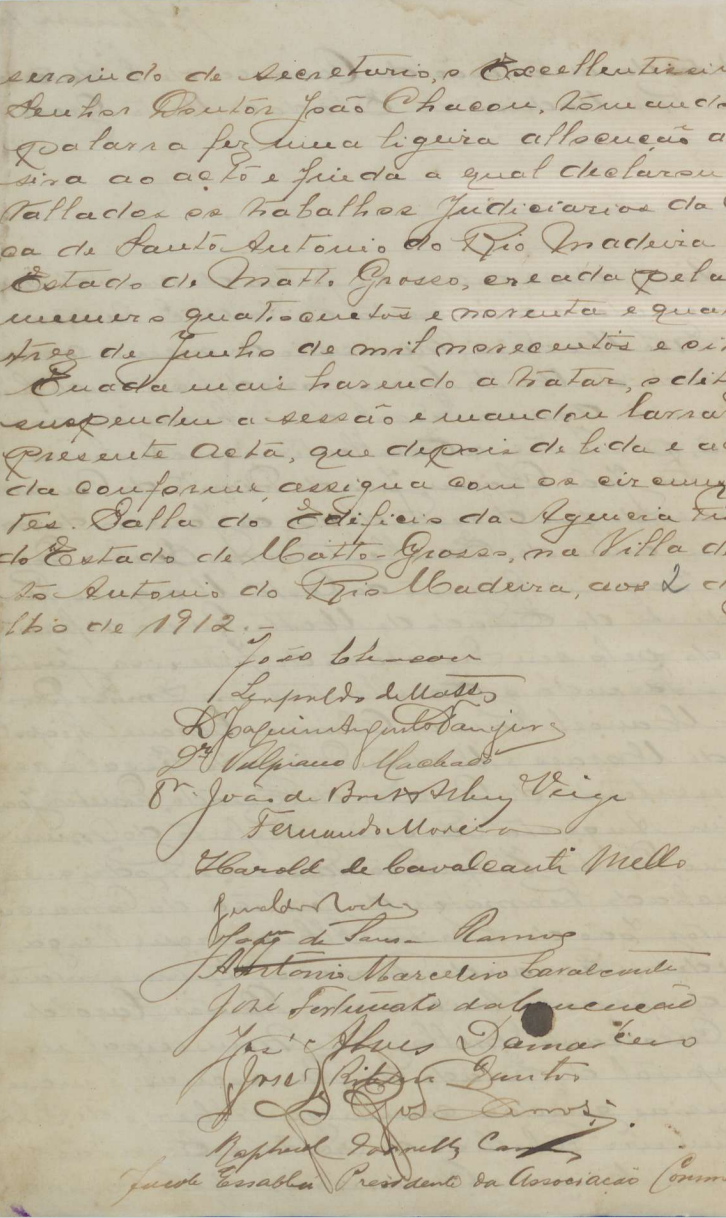 servindo de secretario, o Excellentissi
Senhor Doutor João Chacon, tomando
palavra fez uma ligeira allocução a
siva ao acto e finda a qual declarou
tallados os trabalhos Judiciarios da
ca de Santo Antonio do Rio Madeira
Estado de Matto Grosso, creada pela
numero quatrocentos e noventa e qua
trez de Junho de mil novecentos e oi
E nada mais havendo a tratar, o dit
suspendeu a sessão e mandou lavra
presente acta, que depois de lida e a
da conforme, assigna com os circums
tes. Salla do Edificio da Agencia Fis
do Estado de Matto-Grosso, na Villa d
to Antonio do Rio Madeira, aos 2 d
lho de 1912.-
João Chacon
Leopoldo de Mattos
Dr Joaquim Augusto Tanajura
Dr. Vulpiano Machado
Dr. João de Britto Veiga
Fernando Moreira
Harold de Cavalcanti Mello
Geraldo Rocha
de Sousa Ramos
Antonio Marcelino Cavalcante
José Fortunato da Conceição
José Alves Damasceno
José Santos
Raphael
Presidente da Associação Comm